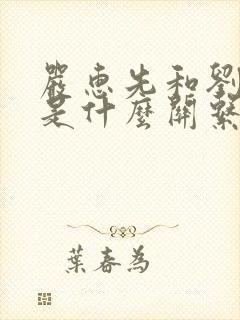 嚴惠先和劉
是什麼關繫
葉春為